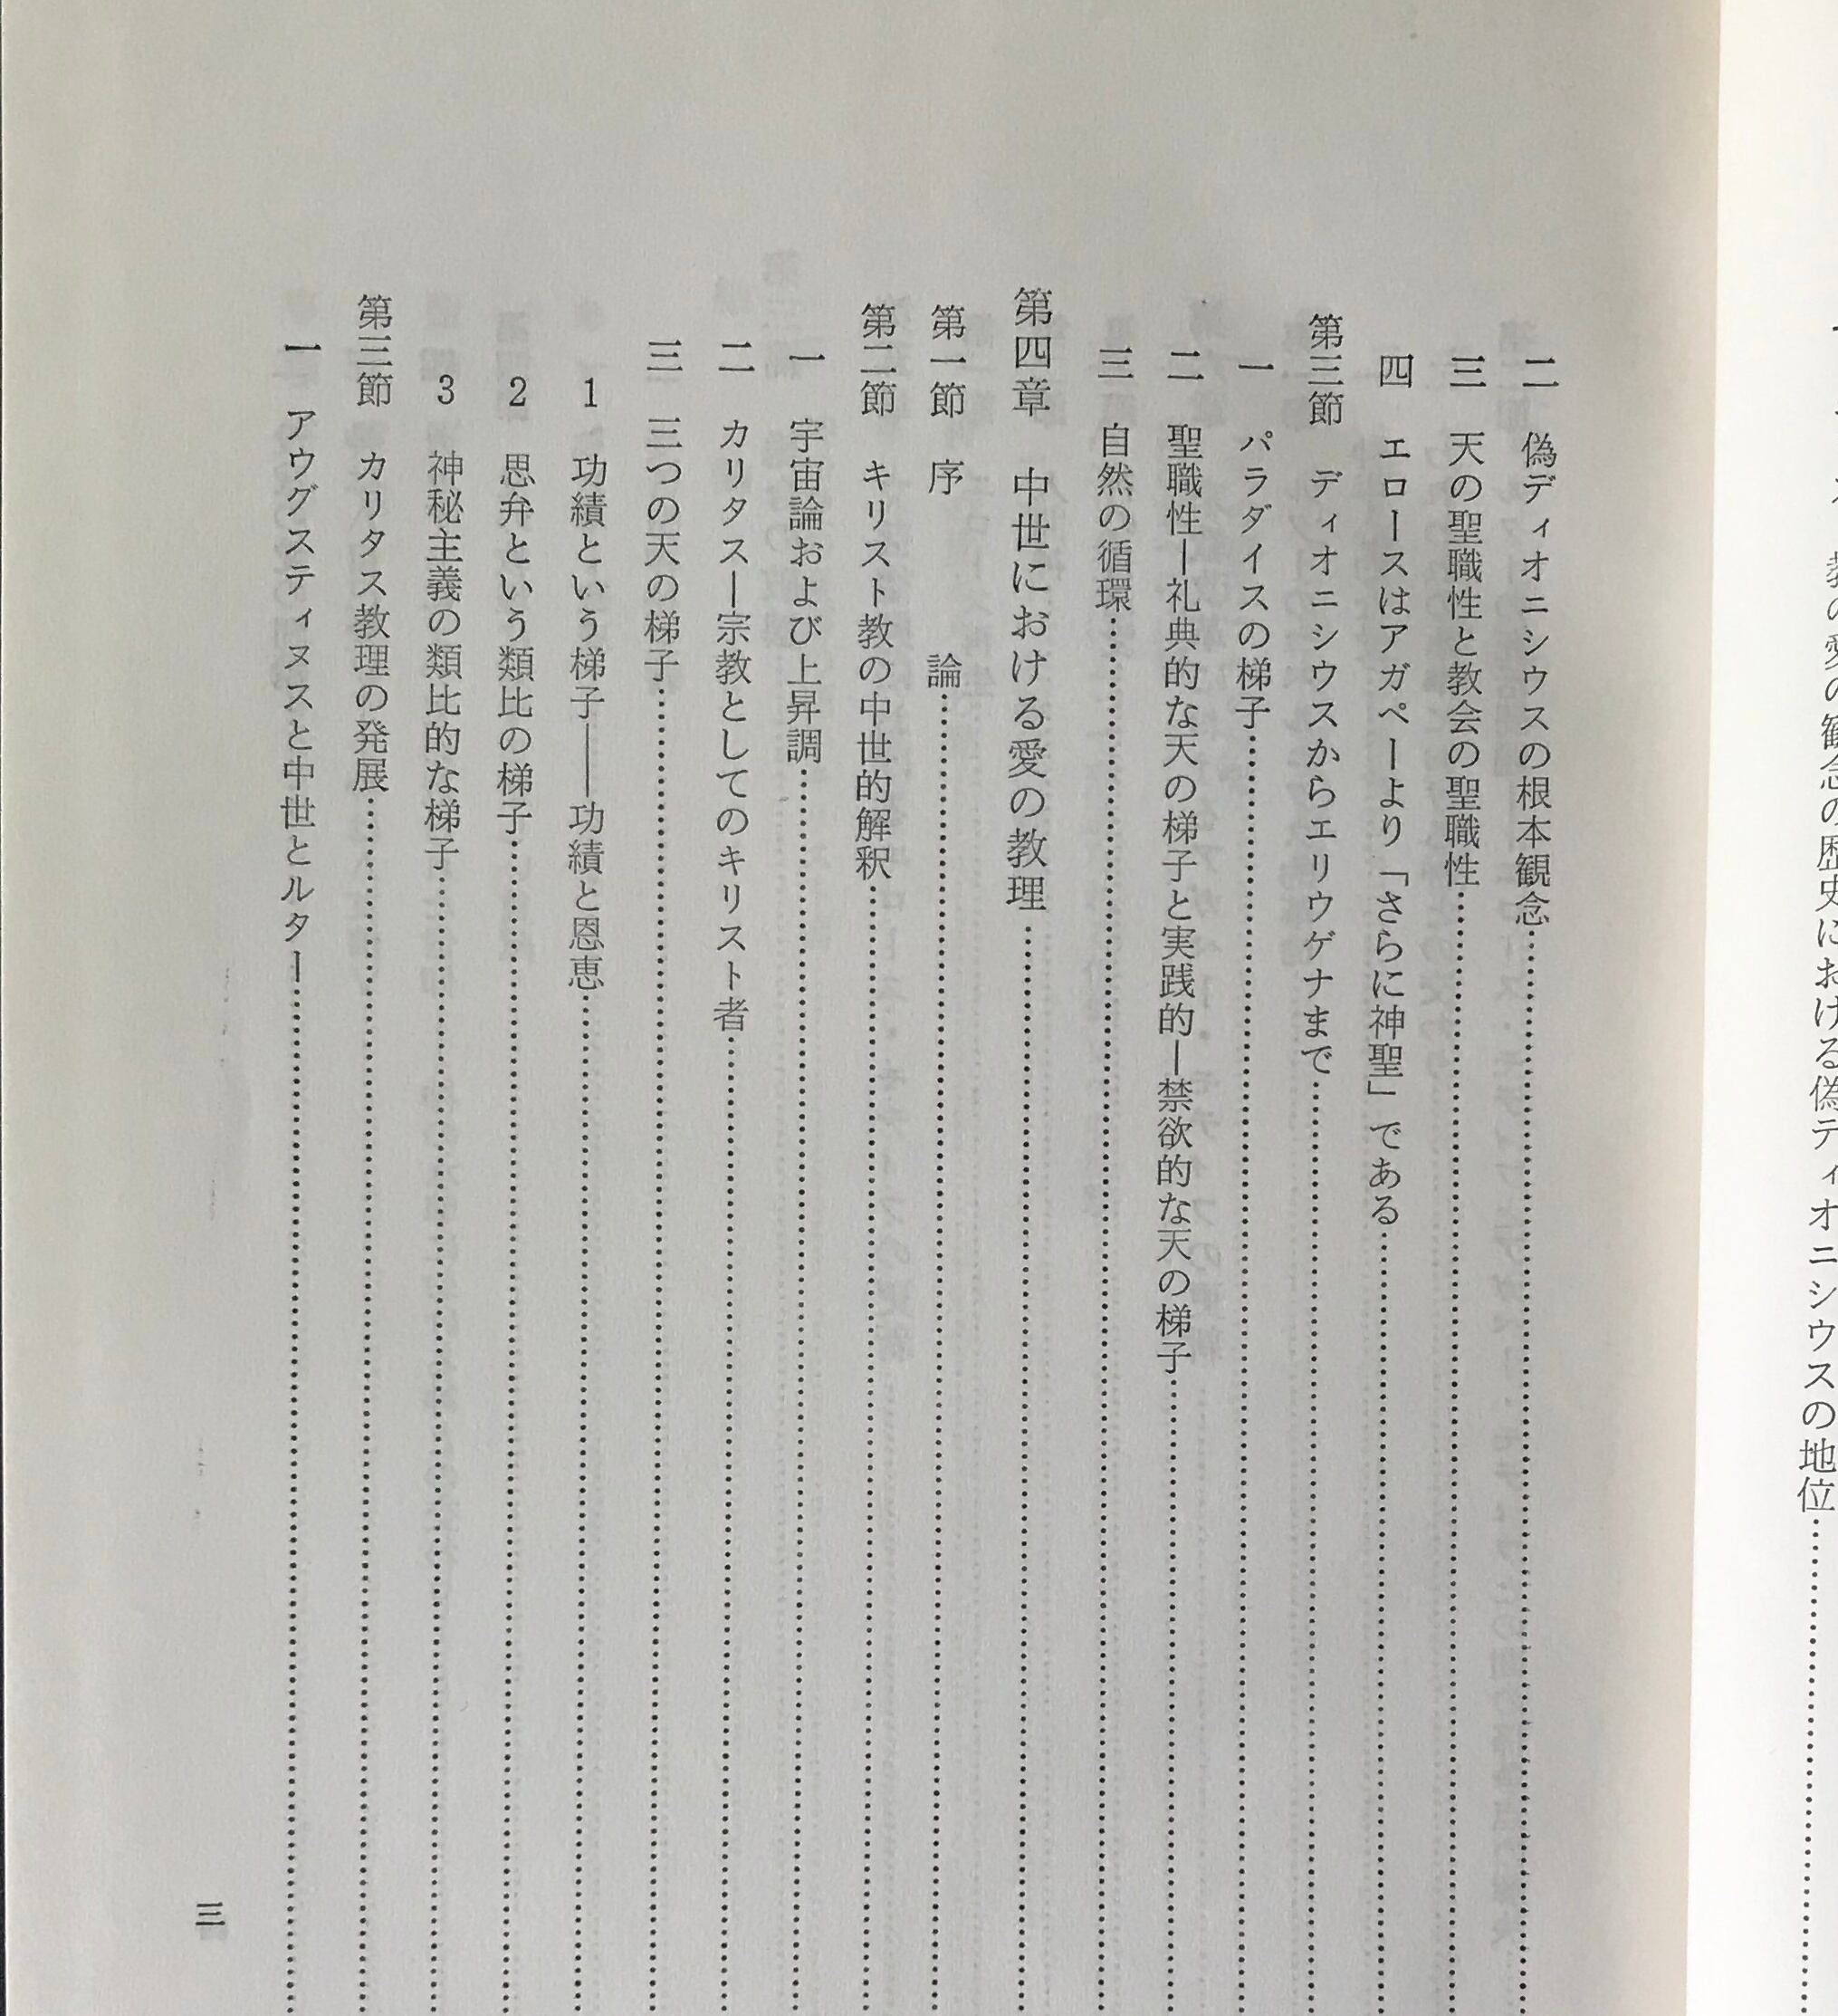 教の愛の観念の歴史における偽ディオニシウスの地位……
二 偽ディオニシウスの根本観念……
三 天の聖職性と教会の聖職性……
四 エロースはアガペーより「さらに神聖」である……
第三節 ディオニシウスからエリウゲナまで……
一 パラダイスの梯子……
二 聖職性―礼典的な天の梯子と実践的―禁欲的な天の梯子……
三 自然の循環……
第四章 中世における愛の教理……
第一節 序論……
第二節 キリスト教の中世的解釈……
一 宇宙論および上昇調……
二 カリタス―宗教としてのキリスト者……
三 三つの天の梯子……
1 功績という梯子――功績と恩恵……
2 思弁という類比の梯子……
3 神秘主義の類比的な梯子……
第三節 カリタス教理の発展……
一 アウグスティヌスと中世とルター……
三